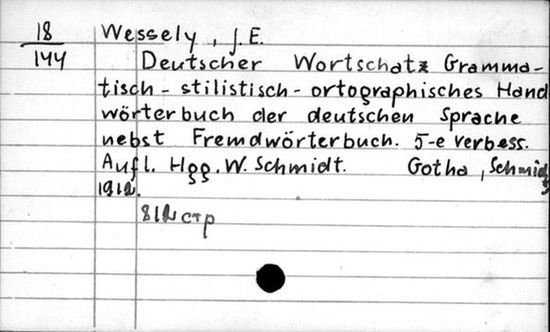 18
144
Wessely, J. E.
Deutscher Wortschatz Gramma-
tisch - stilistisch - ortographisches Hand
wörterbuch der deutschen Sprache
nebst Fremdwörterbuch. 5-e verbess.
Aufl. Hgg. W. Schmidt. Gotha, Schmidt
1912.
812 стр